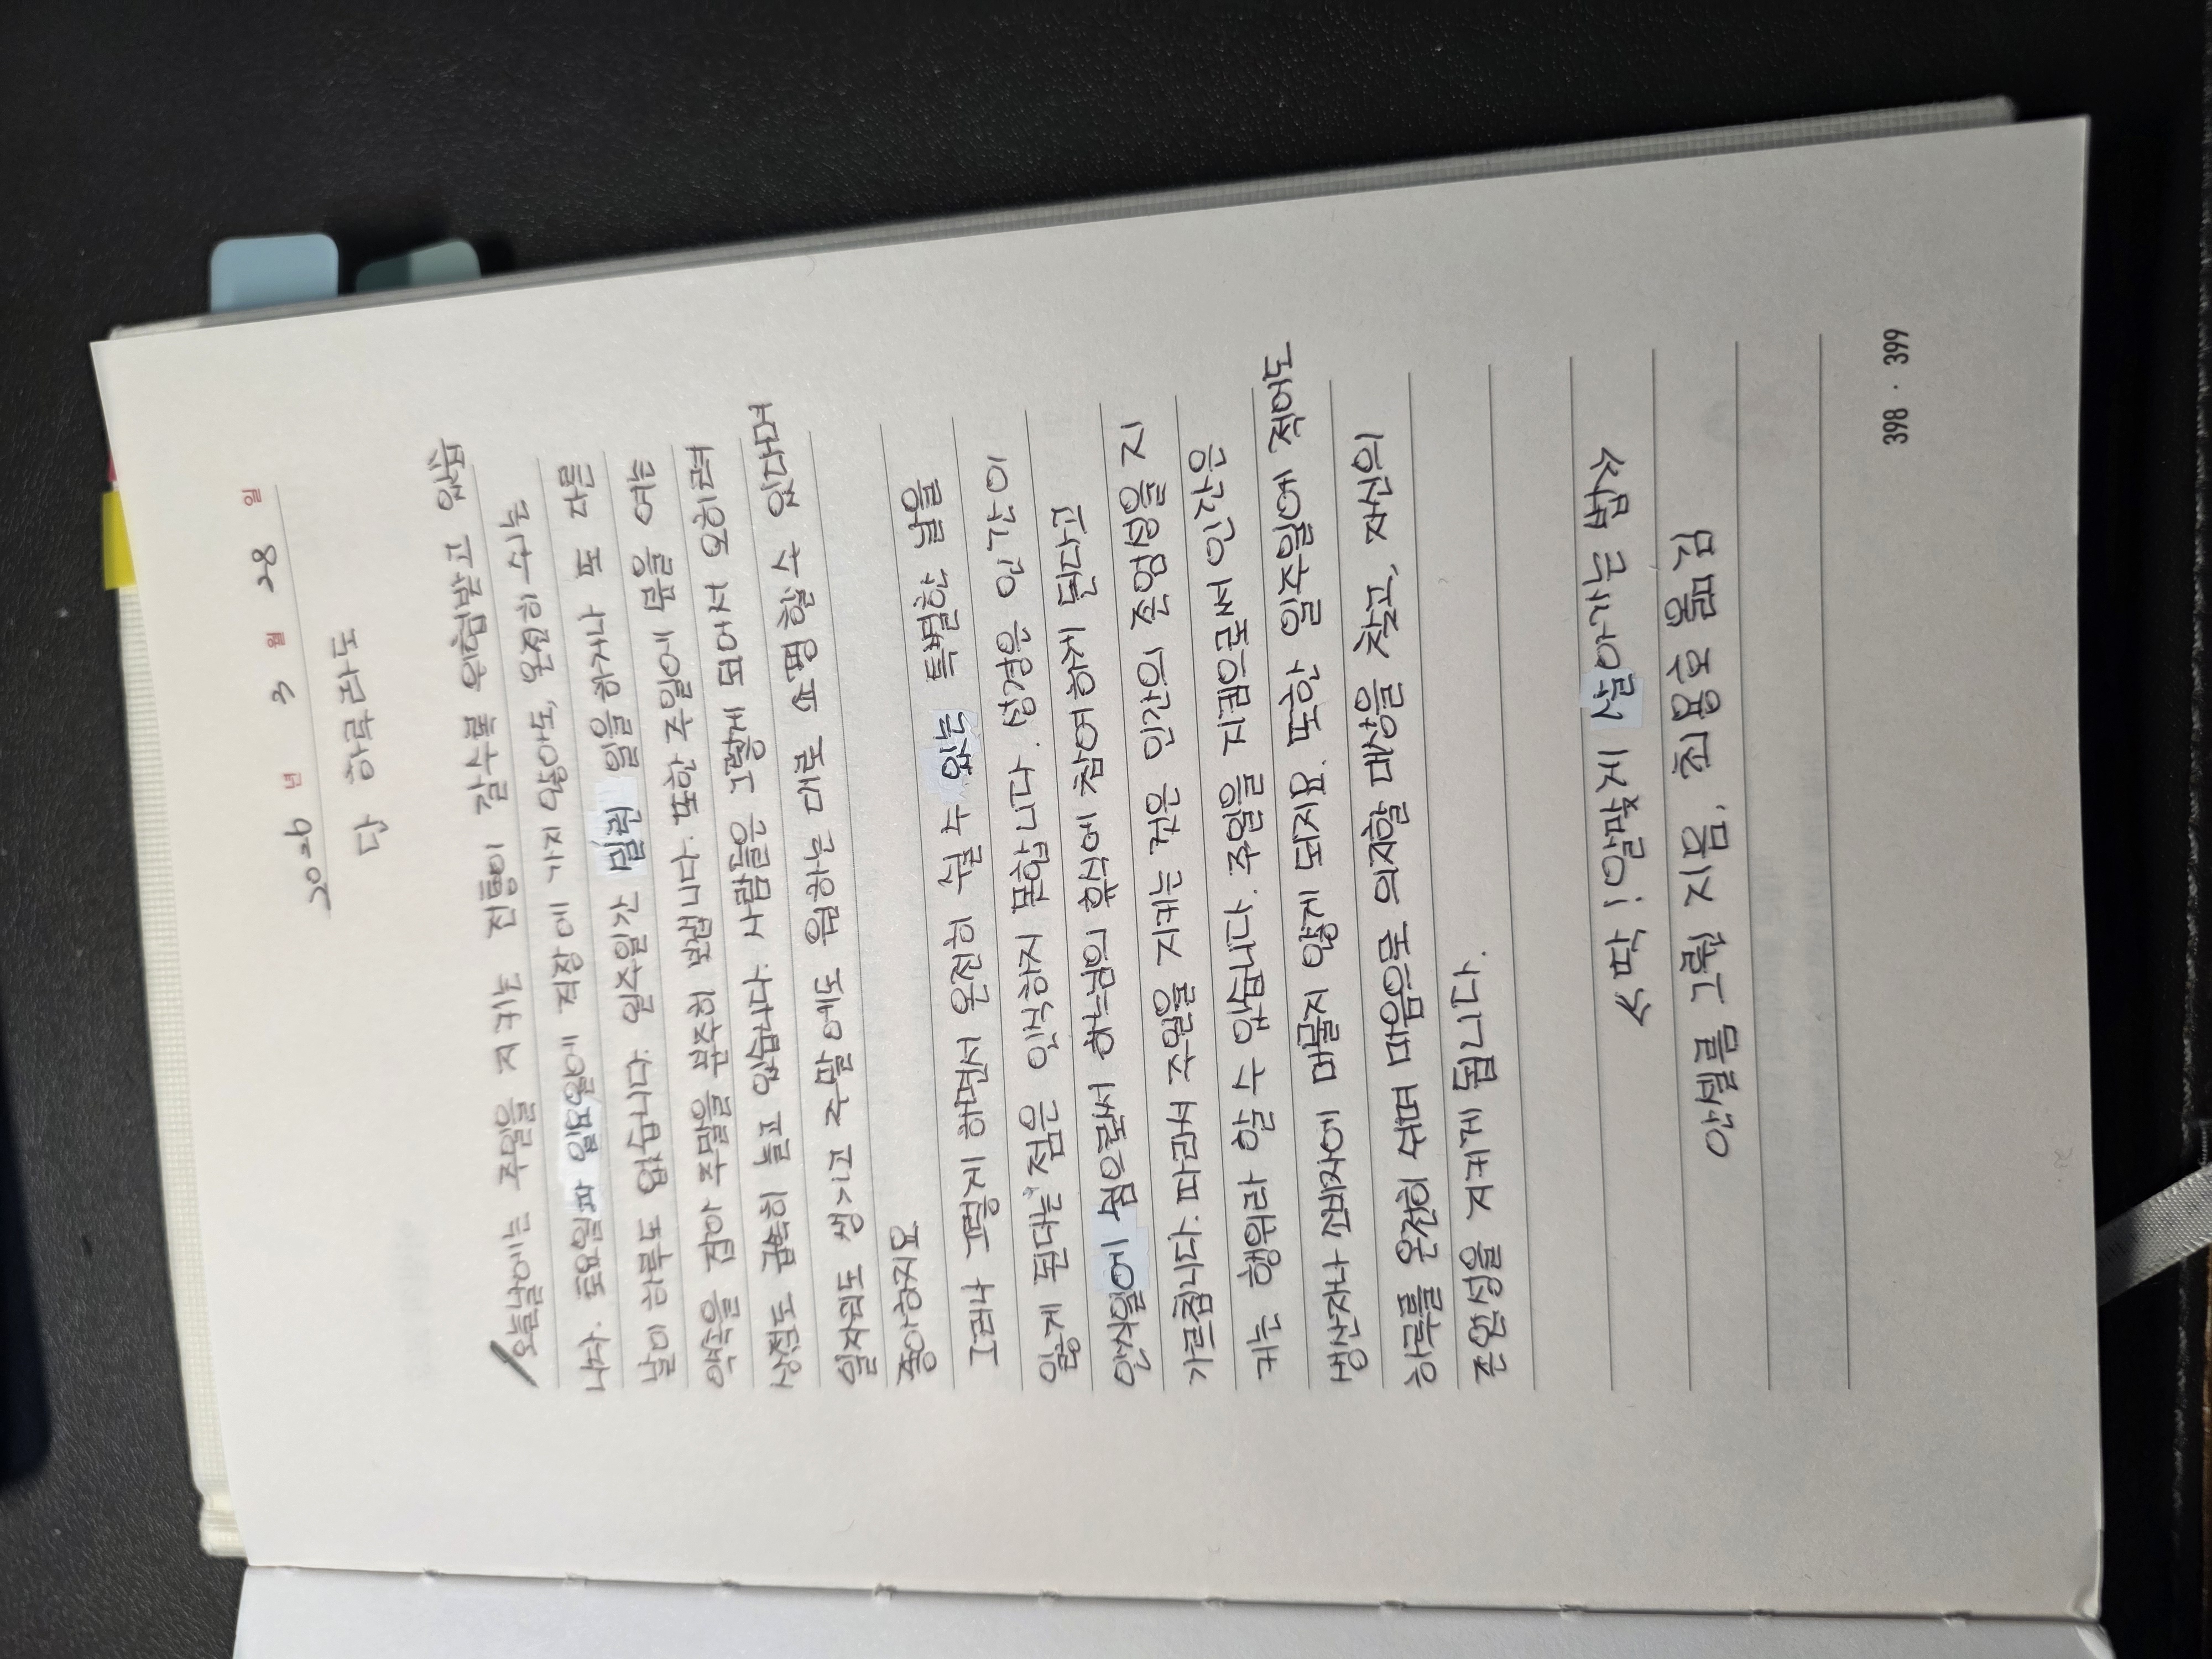 2026 년 3 월 28 일
단 하루라도
오늘날에는 주일을 지키는 전통이 갈수록 위협받고 있습
니다. 토요일과 일요일에 직장에 가지 않아도, 온전히 쉬는
날이 하루도 없습니다. 일주일간 밀린 일을 하거나 또 다른
약속을 잡아 주말을 분주히 보냅니다. 또한 주일에 문을 여는
상점도 급속히 늘고 있습니다. 사람들은 그렇게 되어서 오히려
일자리도 생기고 주말에도 원하는 대로 쇼핑할 수 있다며
좋아하지요
그러나 그렇게 하면서 온전히 쉴 수 있는 특별한 날을
잃게 된다는 점은 인식하지 못합니다. 성경은 인간이
안식일에 쉼으로써 하느님의 휴식에 참여하게 된다고
가르칩니다. 따라서 주일을 지키는 것은 인간의 존엄성을 지
키는 행위라 할 수 있습니다. 주일을 지킴으로써 인간은
생산자나 소비자에 머물지 않게 되지요. 또한 일주일에 적어도
하루를 온전히 쉬며 마음으로 의지할 대상을 찾고, 자신의
존엄성을 지키게 됩니다.
<< 딱! 알맞게 살아가는 법 >>
안셀름 그륀 지음, 최용호 옮김
398 · 399